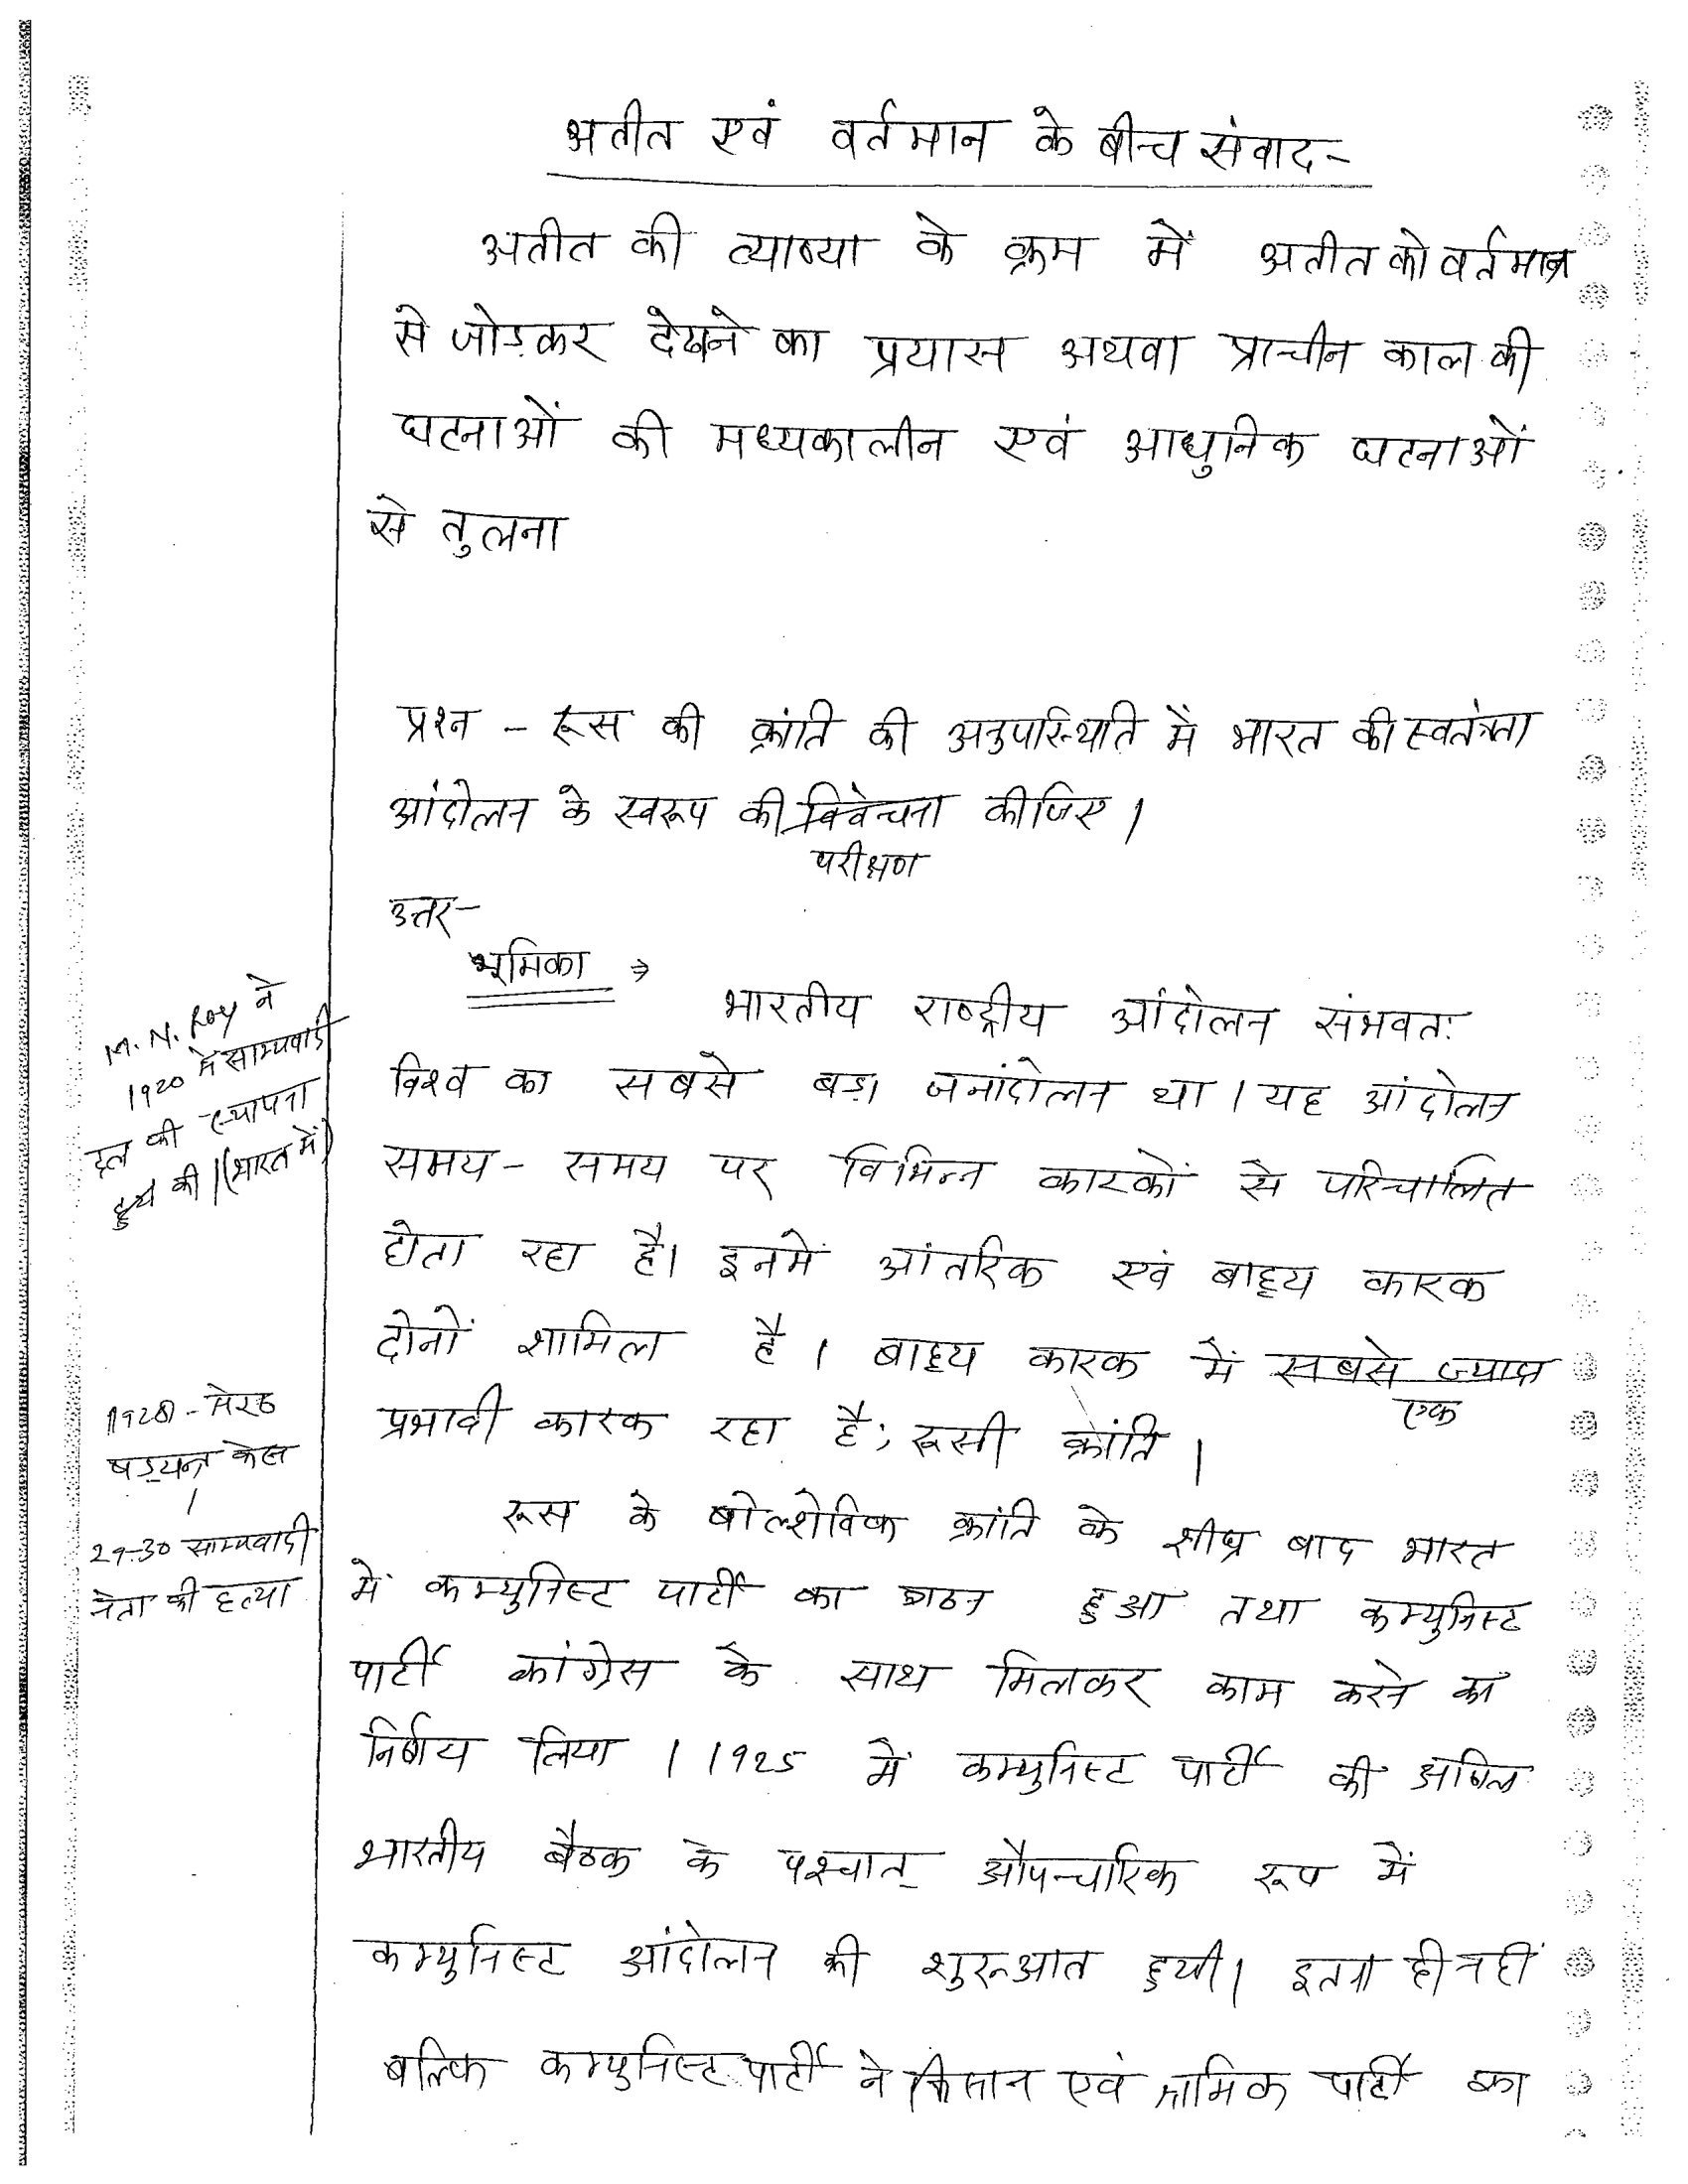 अतीत एवं वर्तमान के बीच संवाद-
अतीत की व्याख्या के क्रम में अतीत को वर्तमान
से जोड़कर देखने का प्रयास अथवा प्राचीन काल की
घटनाओं की मध्यकालीन एवं आधुनिक घटनाओं
से तुलना
प्रश्न - रूस की क्रांति की अनुपस्थिति में भारत की स्वतंत्रता
आंदोलन के स्वरूप की विवेचना कीजिए।
परीक्षण
उत्तर-
भूमिका ⇒
भारतीय राष्ट्रीय आंदोलन संभवतः
विश्व का सबसे बड़ा जनांदोलन था। यह आंदोलन
समय - समय पर विभिन्न कारकों से परिचालित
होता रहा है। इनमें आंतरिक एवं बाह्य कारक
दोनों शामिल है। बाह्य कारक में सबसे ज्यादा
एक
प्रभावी कारक रहा है; रूसी क्रांति।
रूस के बोल्शेविक क्रांति के शीघ्र बाद भारत
में कम्युनिस्ट पार्टी का गठन हुआ तथा कम्युनिस्ट
पार्टी कांग्रेस के साथ मिलकर काम करने का
निर्णय लिया। 1925 में कम्युनिस्ट पार्टी की अखिल
भारतीय बैठक के पश्चात् औपचारिक रूप में
कम्युनिस्ट आंदोलन की शुरूआत हुयी। इतना ही नहीं
बल्कि कम्युनिस्ट पार्टी ने किसान एवं श्रमिक पार्टी का
M. N. Roy ने
1920 में साम्यवादी
दल की स्थापना
की। (भारत में)
मेरठ
षड्यन्त्र केस
29-30 साम्यवादी
नेता की हत्या